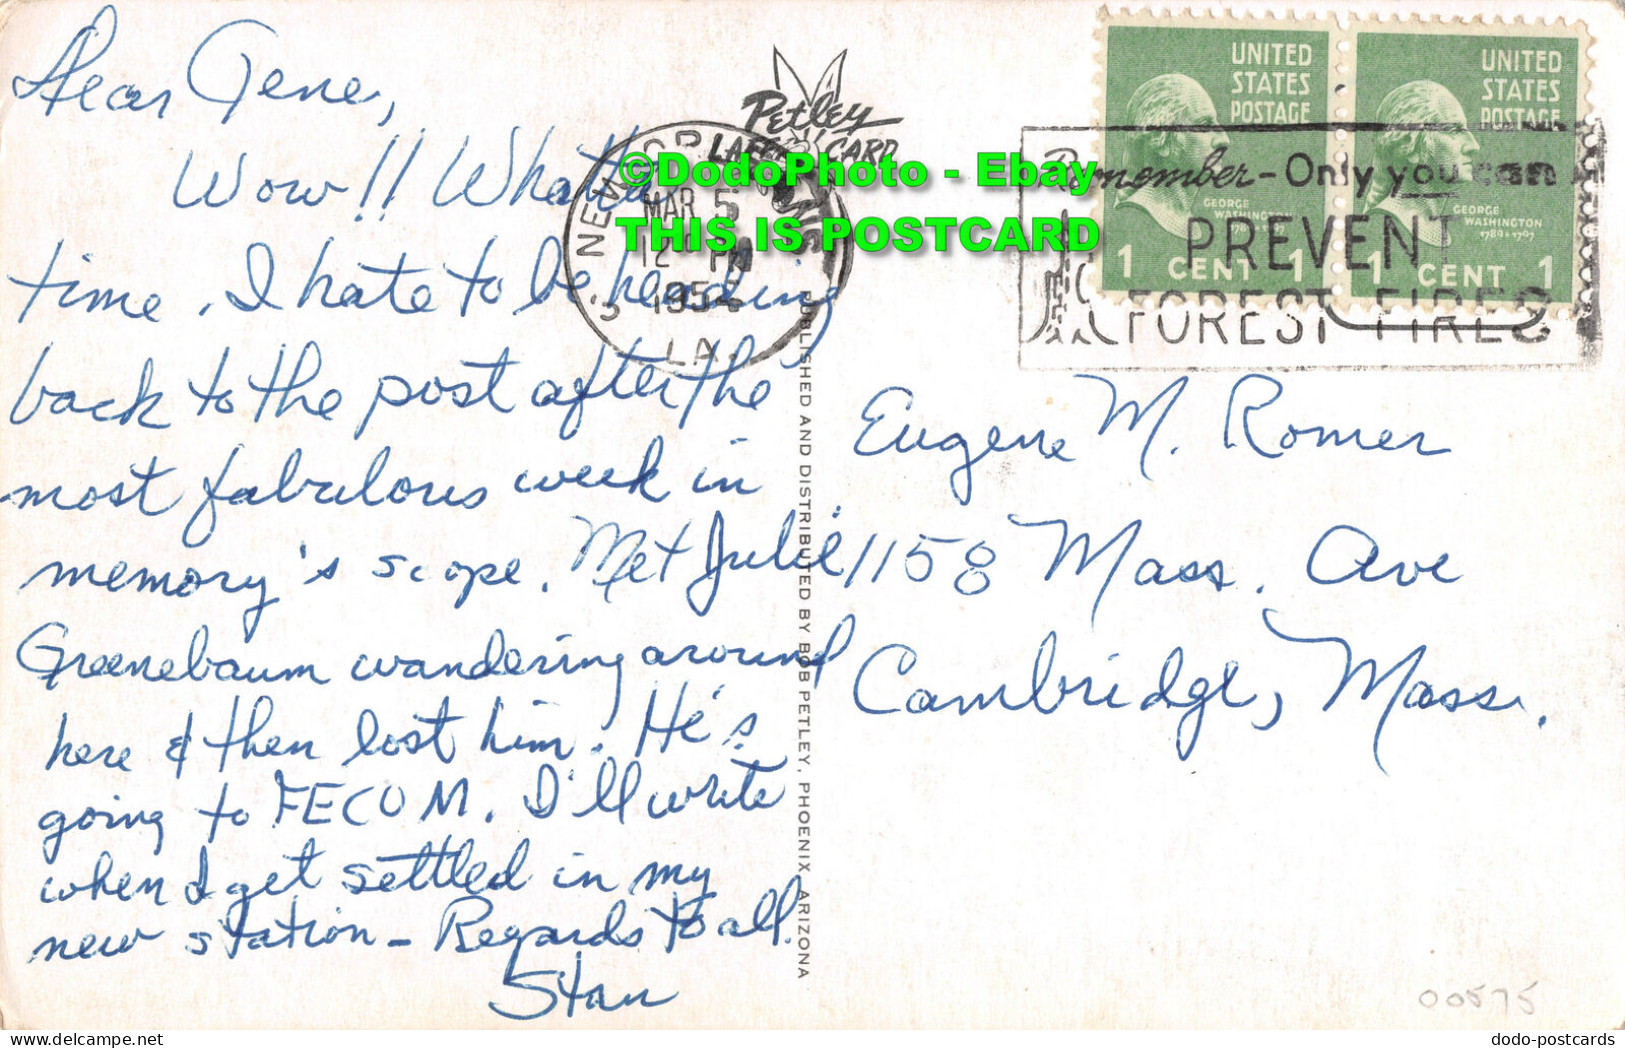 Dear Gene,
Wow!! Whatta
time. I hate to be heading
back to the post after the
most fabulous week in
memory's scope. Met Julie
Greenebaum wandering around
here & then lost him. He's
going to FECOM. I'll write
when I get settled in my
new station - Regards to all.
Stan
Petley
LAFF CARD
NEW OR
MAR 5
12 PM
1954
LA.
©DodoPhoto - Ebay
THIS IS POSTCARD
PUBLISHED AND DISTRIBUTED BY BOB PETLEY, PHOENIX, ARIZONA
UNITED
STATES
POSTAGE
GEORGE
WASHINGTON
1789-1797
1 CENT 1
UNITED
STATES
POSTAGE
GEORGE
WASHINGTON
1789-1797
1 CENT 1
Remember - Only you can
PREVENT
FOREST FIRES
Eugene M. Romer
1158 Mass. Ave
Cambridge, Mass.
00575
dodo-postcards